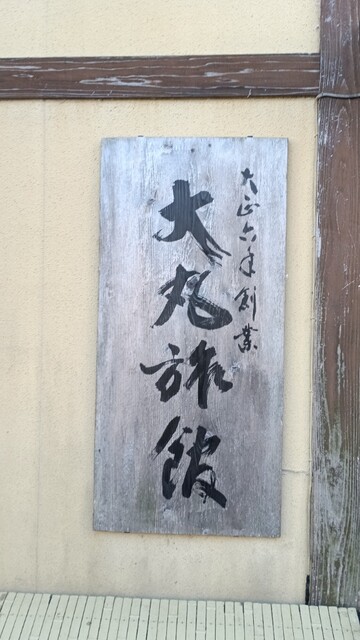 大正六年創業
大丸旅館